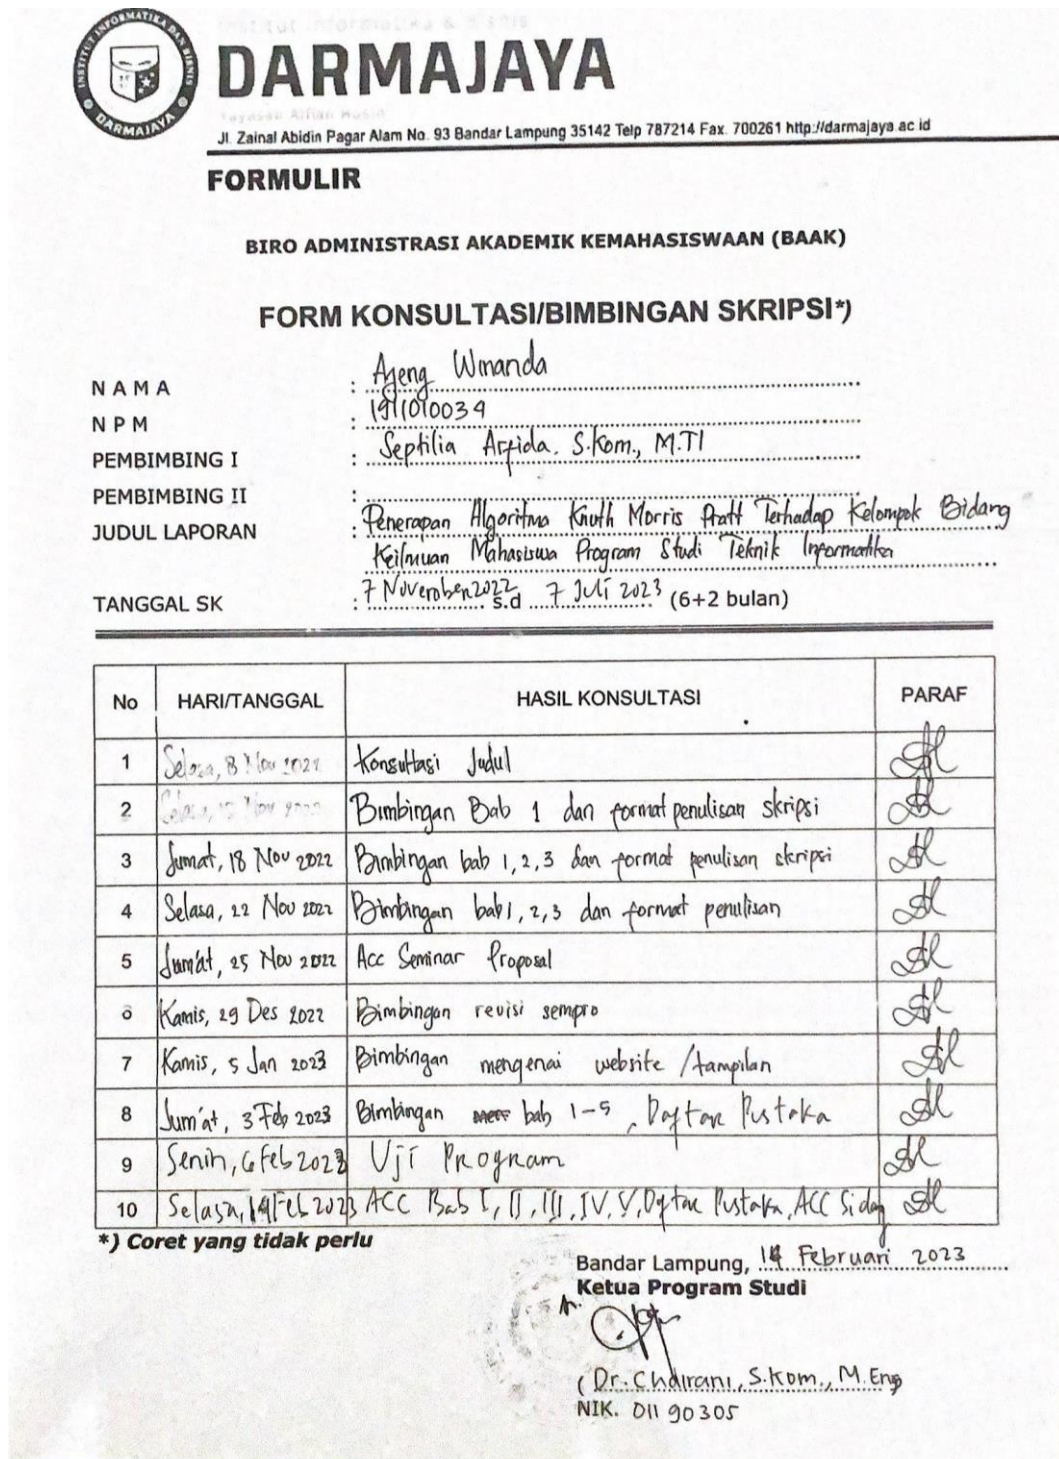 Institut Informatika & Bisnis
DARMAJAYA
Yayasan Alfian Husin
Jl. Zainal Abidin Pagar Alam No. 93 Bandar Lampung 35142 Telp 787214 Fax. 700261 http://darmajaya.ac.id
INSTITUT INFORMATIKA DAN BISNIS
DARMAJAYA
FORMULIR
BIRO ADMINISTRASI AKADEMIK KEMAHASISWAAN (BAAK)
FORM KONSULTASI/BIMBINGAN SKRIPSI*)
NAMA : Ajeng Winanda
NPM : 1911010034
PEMBIMBING I : Septilia Arfida. S.Kom., M.TI
PEMBIMBING II :
JUDUL LAPORAN : Penerapan Algoritma Knuth Morris Pratt Terhadap Kelompok Bidang
Keilmuan Mahasiswa Program Studi Teknik Informatika
TANGGAL SK : 7 November 2022 s.d 7 Juli 2023 (6+2 bulan)
No HARI/TANGGAL HASIL KONSULTASI PARAF
1 Selasa, 8 Nov 2022 Konsultasi Judul
2 Selasa, 15 Nov 2022 Bimbingan Bab 1 dan format penulisan skripsi
3 Jumat, 18 Nov 2022 Bimbingan bab 1, 2, 3 dan format penulisan skripsi
4 Selasa, 22 Nov 2022 Bimbingan bab 1, 2, 3 dan format penulisan
5 Jum'at, 25 Nov 2022 Acc Seminar Proposal
6 Kamis, 29 Des 2022 Bimbingan revisi sempro
7 Kamis, 5 Jan 2023 Bimbingan mengenai website / tampilan
8 Jum'at, 3 Feb 2023 Bimbingan bab 1-5, Daftar Pustaka
9 Senin, 6 Feb 2023 Uji Program
10 Selasa, 14 Feb 2023 ACC Bab I, II, III, IV, V, Daftar Pustaka, ACC Sidang
*) Coret yang tidak perlu
Bandar Lampung, 14 Februari 2023
Ketua Program Studi
(Dr. Chairani, S.Kom., M.Eng
NIK. 01190305